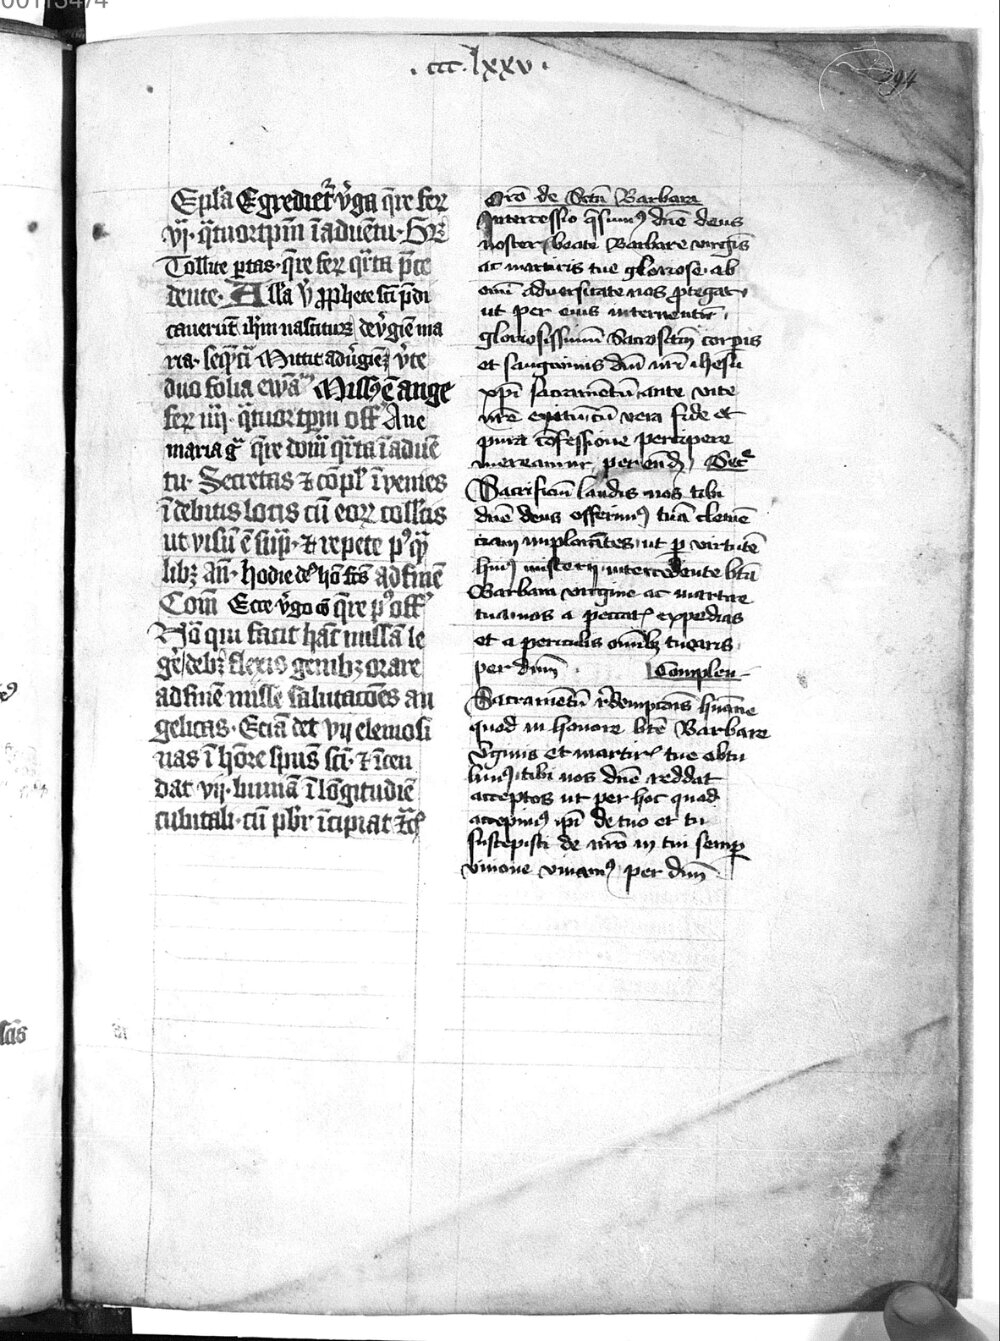 00113474
. ccc . lxxv .
294
Epl'a Egrediet᷑ v̉ga q̄re fer᷑
vj · q̄tuortꝑm̄ ī aduētu · Gr̄
Tollite ꝑtas · q̄re fer᷑ q̄rta p̄ce
dente · Alla v̉ ꝓphete sc̄i p̄di
cauerūt ih̄m nasciturꝫ de v̉gīe ma
ria · seq̄n̄ Mittit ad v̉giēꝫ v̉te
duo folia ewāᵐ Missꝰ ē ange
fer᷑ iiij · q̄tuortꝑm off Aue
maria gᵃ q̄re doīī q̄rta ī aduē
tu · Secretas ⁊ cōpl' īvenies
ī debitis locis cū eoꝝ coll'cis
ut visū ē suꝑ · ⁊ repete pꝰ q̄
libꝫ an̄ · hodie deꝰ hō fc̄s ad finē
Com̄ Ecce v̉go q̄re pꝰ off
Nō qui facit hāc missā le
gē debꝫ flexis genibꝫ orare
ad finē misse salutacōes an
gelicas · Eciā det vij elemosi
nas ī hōre sp̄us sc̄i · ⁊ īcen
dat vij · lumīa ī lōgitudīe
cubitali · cū pb̄r īcipiat ⁊c̄
Oro͞ de Sctā Barbara
Intercessio q̄sumꝰ dn̄e deus
noster beate Barbare virgīs
ac martiris tue gloriose · ab
om̄i aduersitate nos ꝓtegat
ut per eius interuentū
gloriosissimū Sacrosctm̄ corꝑis
et sanguinis dn̄i nr̄i ihesu
xp̄i sacramētū ante vite
nr̄e exitū cū vera fide et
pura cōfessione percipere
mereamur per eūd̄ Secᵃ
Sacrificiū laudis nos tibi
dn̄e deus offerimꝰ tuā clemē
ciam implorātes ut ꝑ virtutē
huiꝰ misterij intercedente btā
Barbara virgine ac martire
tua nos a peccat᷑ expedias
et a periculis om̄ibꝫ tuearis
per dn̄m Complen
Sacramētū rͤdempcōis hūane
quod in honore btē Barbare
v̉ginis et martir᷑ tue obtu
limꝰ tibi nos dn̄e reddat
acceptos ut per hoc quod
accepimꝰ ip̄i de tuo et tu
suscepisti de nr̄o in tui semꝑ
vnione viuamꝰ per dn̄m